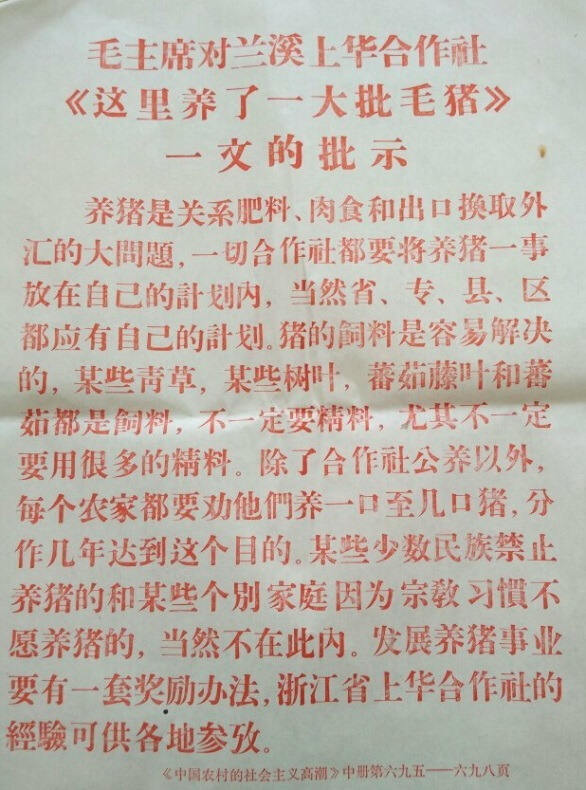 毛主席对兰溪上华合作社
《这里养了一大批毛猪》
一文的批示
养猪是关系肥料、肉食和出口換取外
汇的大問題，一切合作社都要将养猪一事
放在自己的計划内，当然省、专、县、区
都应有自己的計划。猪的飼料是容易解决
的，某些青草，某些树叶，蕃茹藤叶和蕃
茹都是飼料，不一定要精料，尤其不一定
要用很多的精料。除了合作社公养以外，
每个农家都要劝他們养一口至几口猪，分
作几年达到这个目的。某些少数民族禁止
养猪的和某些个別家庭因为宗敎习慣不
愿养猪的，当然不在此内。发展养猪事业
要有一套奖励办法，浙江省上华合作社的
經驗可供各地参攷。
《中国农村的社会主义高潮》中册第六九五——六九八页